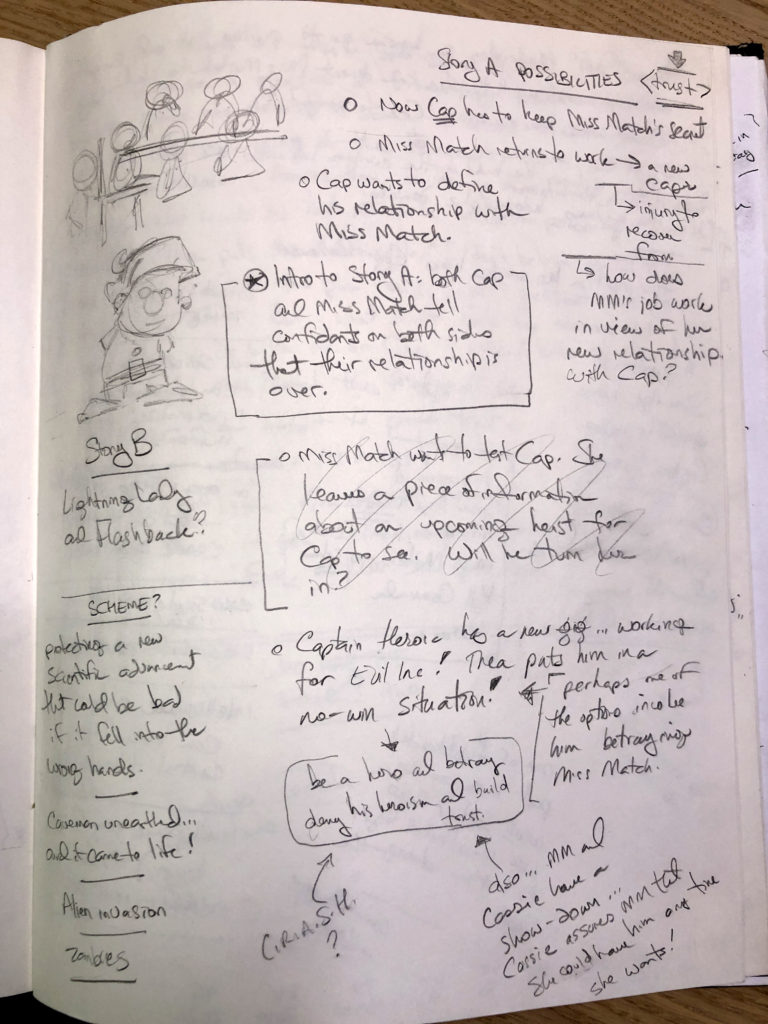 Story A POSSIBILITIES <trust>
o Now Cap has to keep Miss Match's secret
o Miss Match returns to work → a new
caper
↳ injury to
recover
from
↳ how does
MM's job work
in view of her
new relationship
with Cap?
o Cap wants to define
his relationship with
Miss Match.
Intro to Story A: both Cap
and Miss Match tell
confidants on both sides
that their relationship is
over.
o Miss Match want to test Cap. She
leaves a piece of information
about an upcoming heist for
Cap to see. Will he turn her
in?
o Captain Heroic has a new gig... working
for Evil Inc! Thea puts him in a
no-win situation!
perhaps one of
the options involve
him betraying
Miss Match.
be a hero and betray
deny his heroism and build
trust.
C.R.A.S.H.
?
also... MM and
Cassie have a
show-down...
Cassie assures MM that
She could have him any time
she wants!
Story B
Lightning Lady
and Flashback?
SCHEME?
protecting a new
scientific advancement
that could be bad
if it fell into the
wrong hands.
Caveman unearthed...
and it came to life!
Alien invasion
Zombies